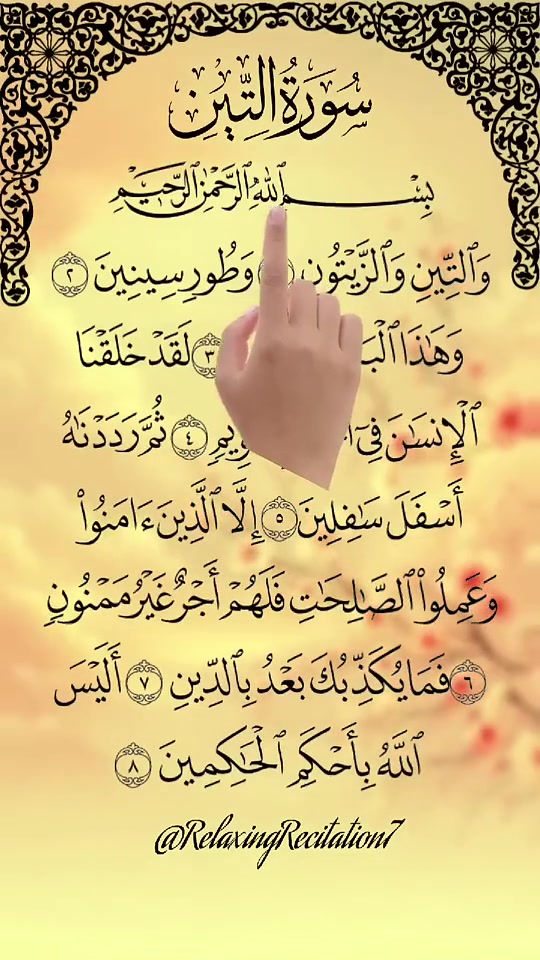 سُورَةُ التِّينِ
بِسْمِ ٱللَّهِ ٱلرَّحْمَٰنِ ٱلرَّحِيمِ
وَٱلتِّينِ وَٱلزَّيْتُونِ وَطُورِ سِينِينَ ٢
وَهَٰذَا ٣ لَقَدْ خَلَقْنَا
ٱلْإِنسَٰنَ فِىٓ ٤ ثُمَّ رَدَدْنَٰهُ
أَسْفَلَ سَٰفِلِينَ ٥ إِلَّا ٱلَّذِينَ ءَامَنُوا۟
وَعَمِلُوا۟ ٱلصَّٰلِحَٰتِ فَلَهُمْ أَجْرٌ غَيْرُ مَمْنُونٍ
٦ فَمَا يُكَذِّبُكَ بَعْدُ بِٱلدِّينِ ٧ أَلَيْسَ
ٱللَّهُ بِأَحْكَمِ ٱلْحَٰكِمِينَ ٨
@RelaxingRecitation7